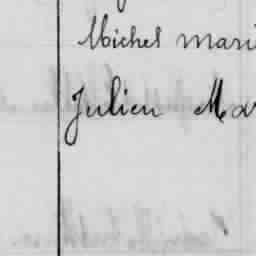 Michel mari
Julien Ma